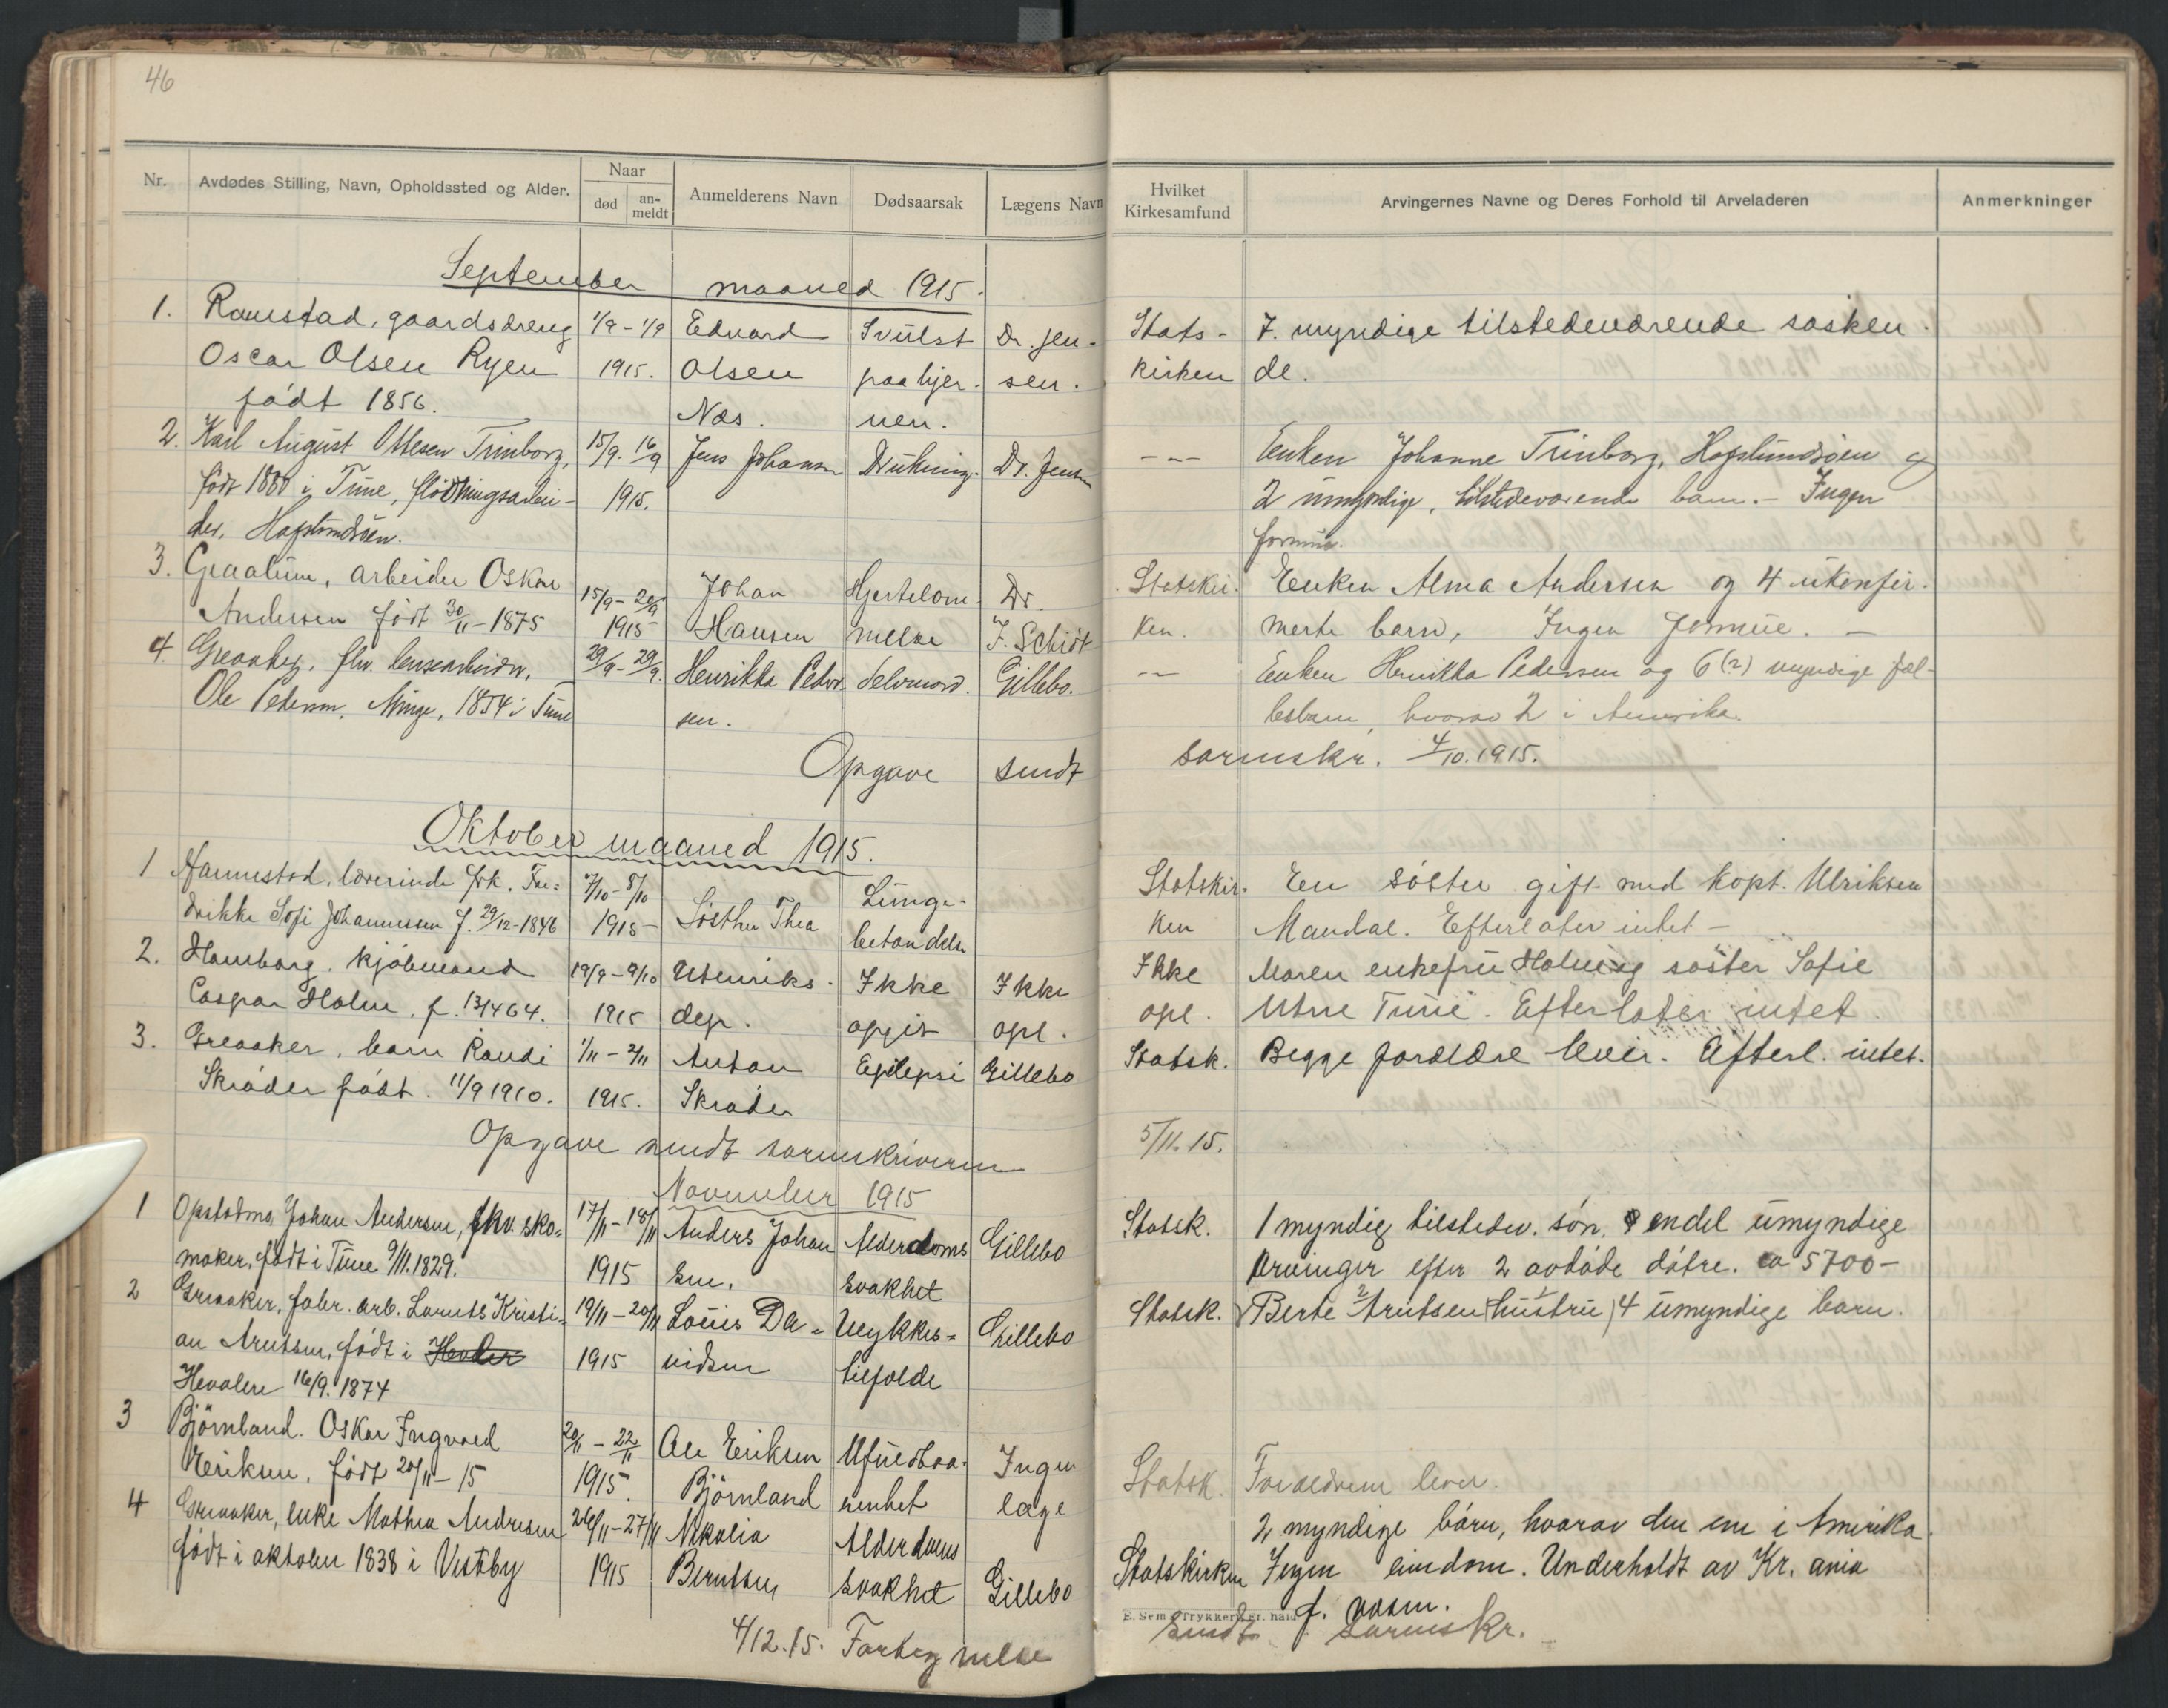 46
Nr.
Avdødes Stilling, Navn, Opholdssted og Alder.
Naar
død
an-
meldt
Anmelderens Navn
Dødsaarsak
Lægens Navn
Hvilket
Kirkesamfund
Arvingernes Navne og Deres Forhold til Arveladeren
Anmerkninger
September maaned 1915.
1. Ramstad, gaardsdreng 1/9 - 1/9 Edvard Svulst Dr. Jen- Stats- 7. myndige tilstedeværende søsken
Oscar Olsen Ryen 1915. Olsen paa hjer- sen. kirken de.
født 1856. Næs. nen.
2. Karl August Ottesen Trinborg, 15/9. 16/9 Jens Johansen Drukning. Dr. Jensen --- Enken Johanne Trinborg, Hafslundsöen og
født 1880 i Tune, flödningsarbei- 1915. 2 umyndige, tilstedeværende barn. - Ingen
der, Hafslundsöen. formue.
3. Graalum, arbeider Oskar 15/9 - 20/9 Johan Hjertelam- Dr. Statskir- Enken Alma Andersen og 4 ukonfir-
Andersen født 30/11 - 1875 1915 Hansen melse F. Schiöt ken. merte barn, Ingen formue. -
4. Greaaker, flv. lensearbeider, 29/9 - 29/9. Henrikka Peder- selvmord. Gillebo. -- Enken Henrikka Pedersen og 6 (?) myndige fæl-
Ole Pedersen, Minge, 1854 i Tune sen. lesbarn, hvorav 2 i Amerika.
Opgave sendt sorenskr. 4/10.1915.
Oktober maaned 1915.
1 Hannestad, lærerinde frk. Fre- 7/10 - 8/10 Söster Thea Lunge- Statskir- En söster gift med kapt. Ulriksen
drikke Sofi Johannessen f. 29/12-1846 1915 betændelse ken Mandal. Efterlater intet -
2. Hamborg, kjöbmand 19/9 - 9/10 Utenriks- Ikke Ikke Ikke Maren enkefru Holm og søster Sofie
Caspar Holm, f. 13/4 64. 1915 dep. opgit opl. opl. Utne Tune. Efterlater intet
3. Greaaker, barn Randi 1/11 - 2/11 Anton Epilepsi Gillebo Statsk. Begge forældre lever. Efterl. intet.
Skrøder født. 11/9 1910. 1915. Skrøder
Opgave sendt sorenskriveren 5/11.15.
November 1915
1 Opstadmo, Johan Andersen, fhv. sko- 17/11 - 18/11 Anders Johan Alderdoms Gillebo Statsk. 1 myndig tilstedev. sön, endel umyndige
maker, født i Tune 9/11.1829. 1915 sen. svakhet Arvinger efter 2 avdøde døtre. ca 5700 -
2 Greaaker, fabr. arb. Lorents Kristi- 19/11 - 20/11 Louis Da- Ulykkes- Gillebo Statsk. Berte Arntsen (hustru) 4 umyndige barn.
an Arntsen, født i Hvaler 1915 vidsen tilfælde
Hvaleren 16/9. 1874
3 Björnland. Oskar Ingvald 20/11 - 22/11 Ole Eriksen Ufuldbaa- Ingen Statsk. Forældrene lever.
Eriksen, født 20/11 - 15 1915. Björnland renhet læge
4 Greaaker, enke Mathea Andresen 26/11 - 27/11 Nikolia Alderdoms 2 myndige børn, hvorav den ene i Amerika.
født i oktober 1838 i Vestby 1915 Berntsen svakhet Gillebo Statskirken Ingen eiendom. Underholdt av Kr. ania
f. væsen.
4/12.15. Fortegnelse sendt sorenskr.